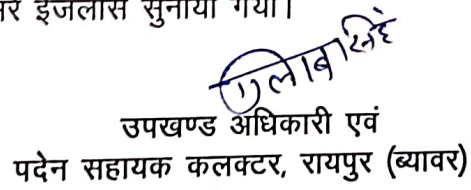 र इजलास सुनाया गया।
गुलाबसिंह
उपखण्ड अधिकारी एवं
पदेन सहायक कलक्टर, रायपुर (ब्यावर)